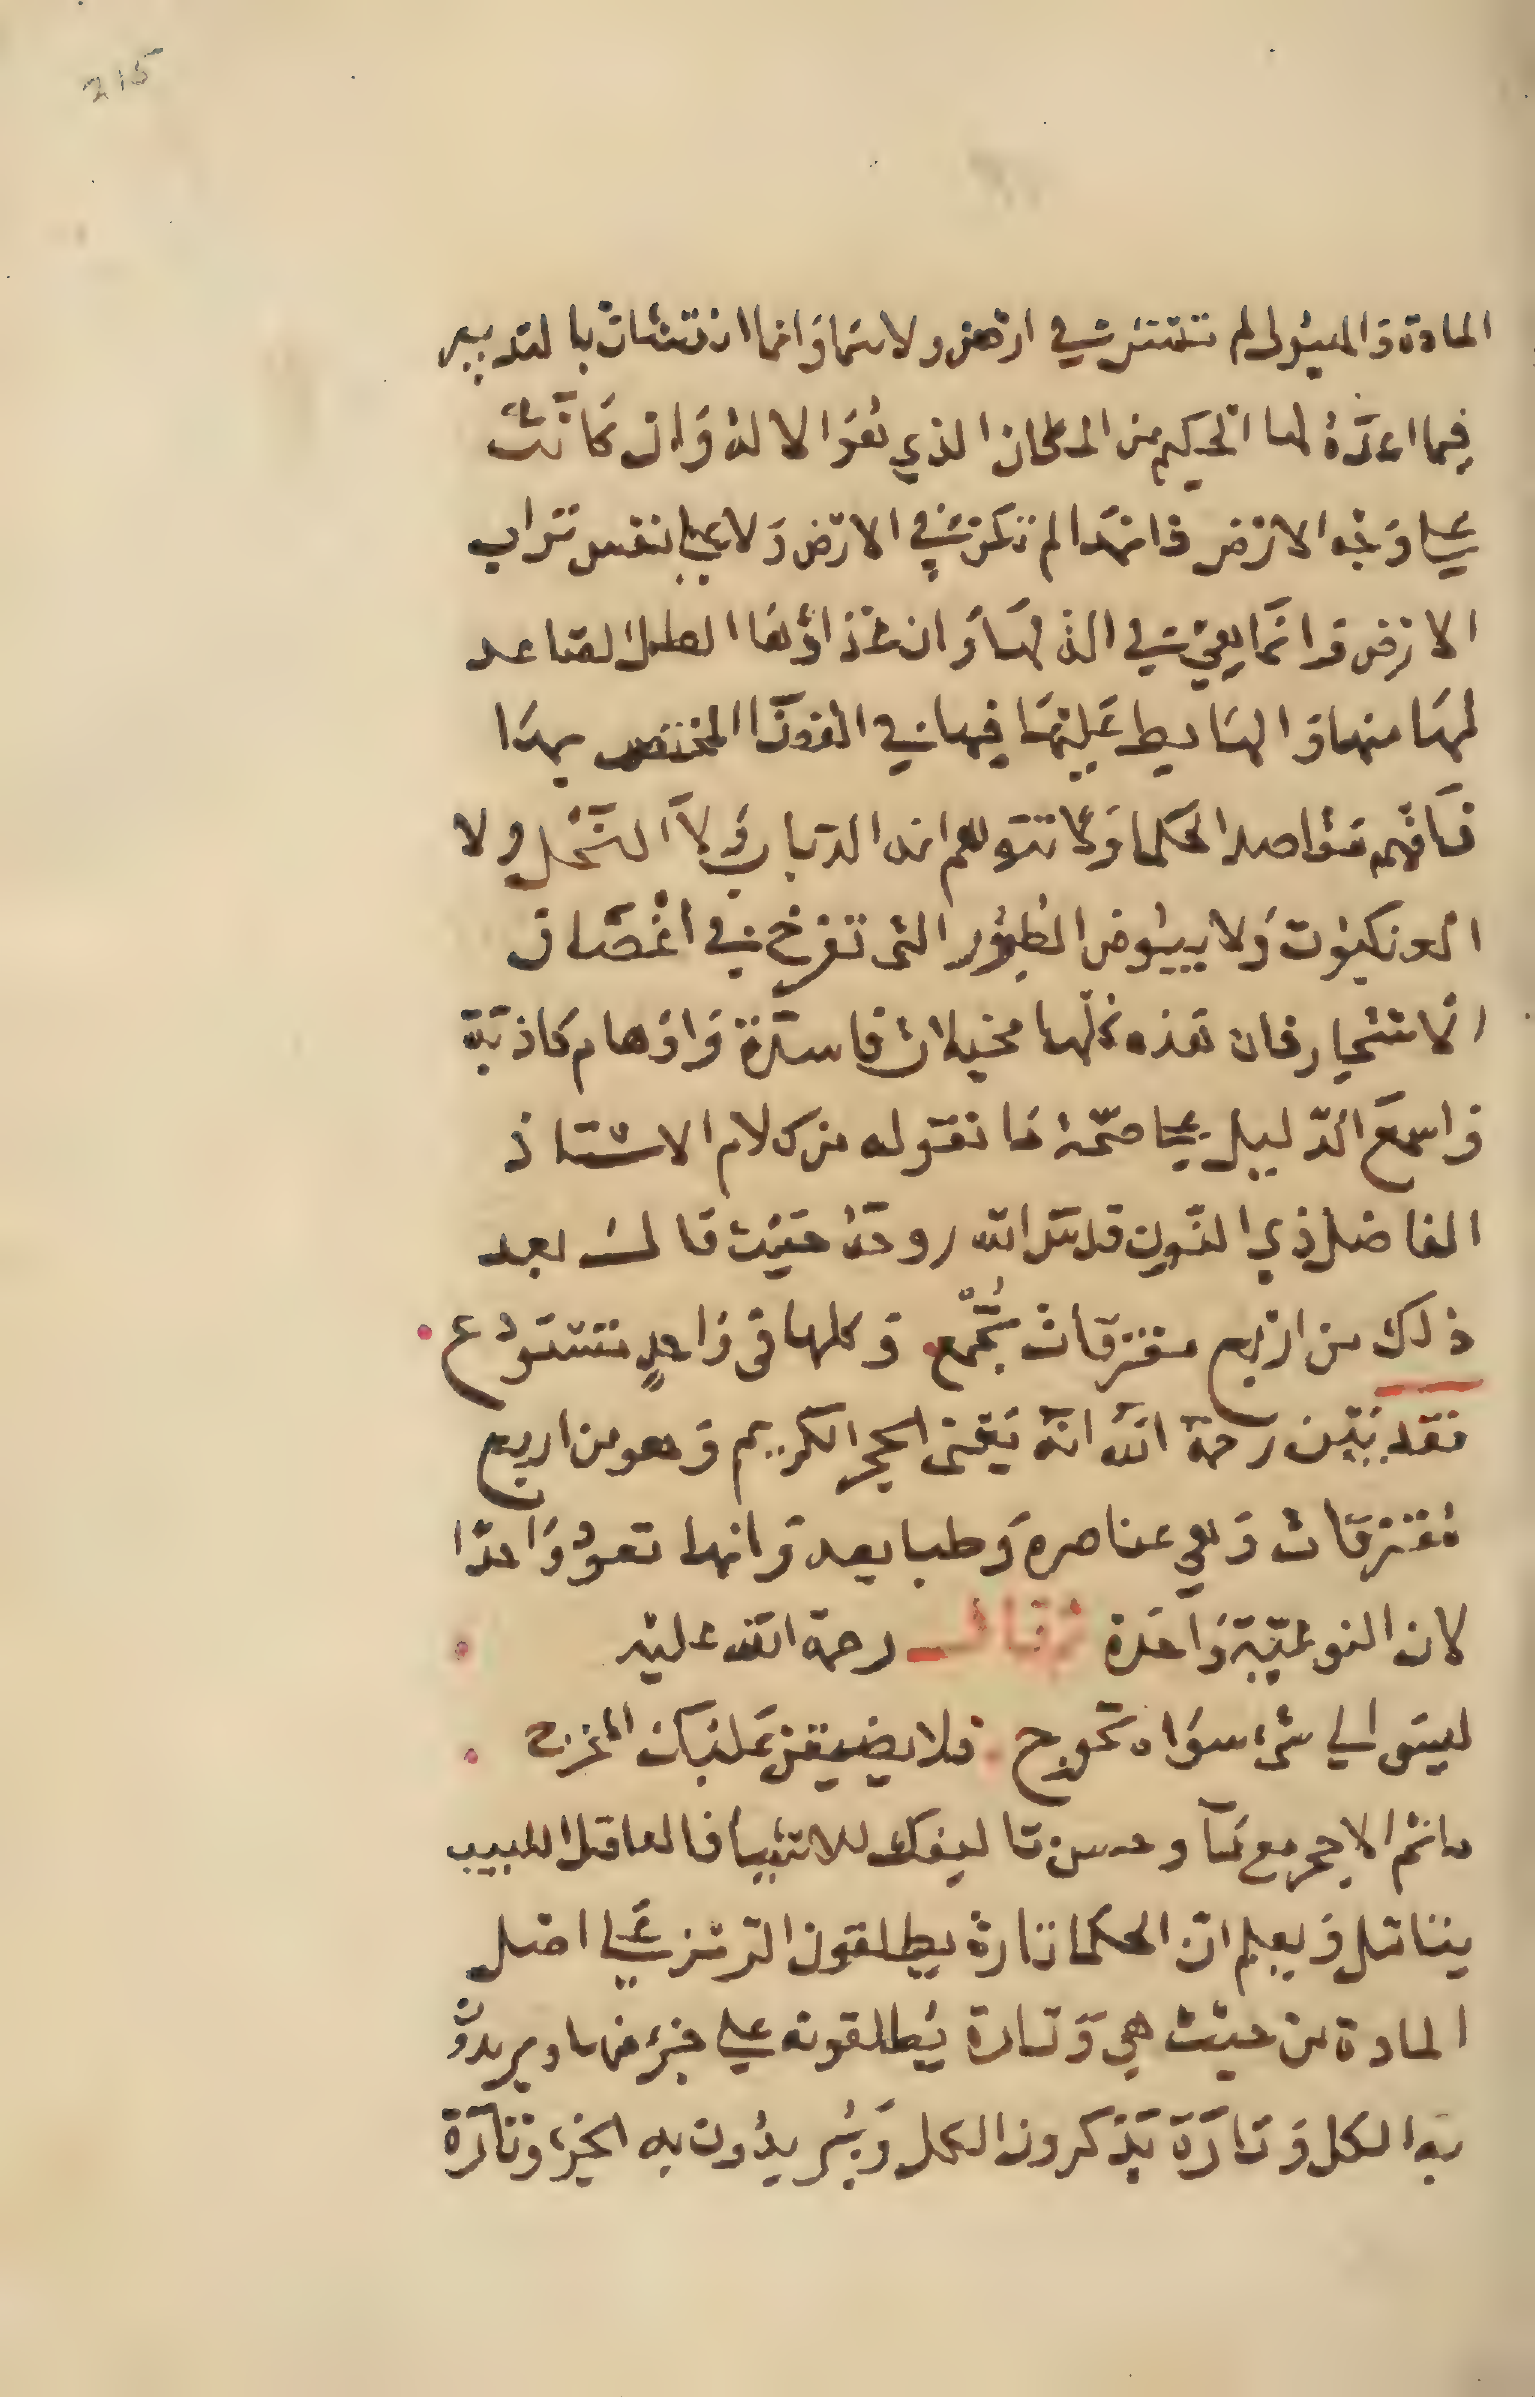 215
المادة والهيولى لم تنتشر في ارض ولا سما وانما انتشات بالتدبير
فيما اعده لها الحكيم من المكان الذي هو الاله وان كانت
علي وجه الارض فانها لم تكن في الارض ولا علي نفس تراب
الارض وانما يعني في الة لها وان غذاؤها الطل الصاعد
لها منها والهابط عليها فيها في المختص بهدا
فافهم مقاصد الحكما ولا تتوهم انه الدباب ولا النحل ولا
العنكبوت ولا بيوض الطيور التي تفرخ في اغصان
الاشجار فان هذه كلها مخيلات فاسدة واوهام كاذبة
واسمع الدليل علي صحة ما نقوله من كلام الاستاذ
الفاضل ذي النون قدس الله روحه حيث قال بعد
ذلك من اربع مفترقات تجمع وكلها في واحد تستودع
فقد بين رحمة الله انه يعني الحجر الكريم وهو من اربع
مفترقات وهي عناصره وطبايعه وانها تعود واحدا
لان النوعية واحدة ثم قال رحمة الله عليه
ليس الي شي سواه تحوج فلا يضيقن عليك المخرج
ما ثم الا حجر مع ما وحسن تاليفك للاشيا فالعاقل اللبيب
يتامل ويعلم ان الحكما تارة يطلقون الرمز علي اصل
المادة من حيث هي وتارة يطلقونه علي جزء منها ويريدون
به الكل وتارة يذكرون الكل ويريدون به الجزء وتارة